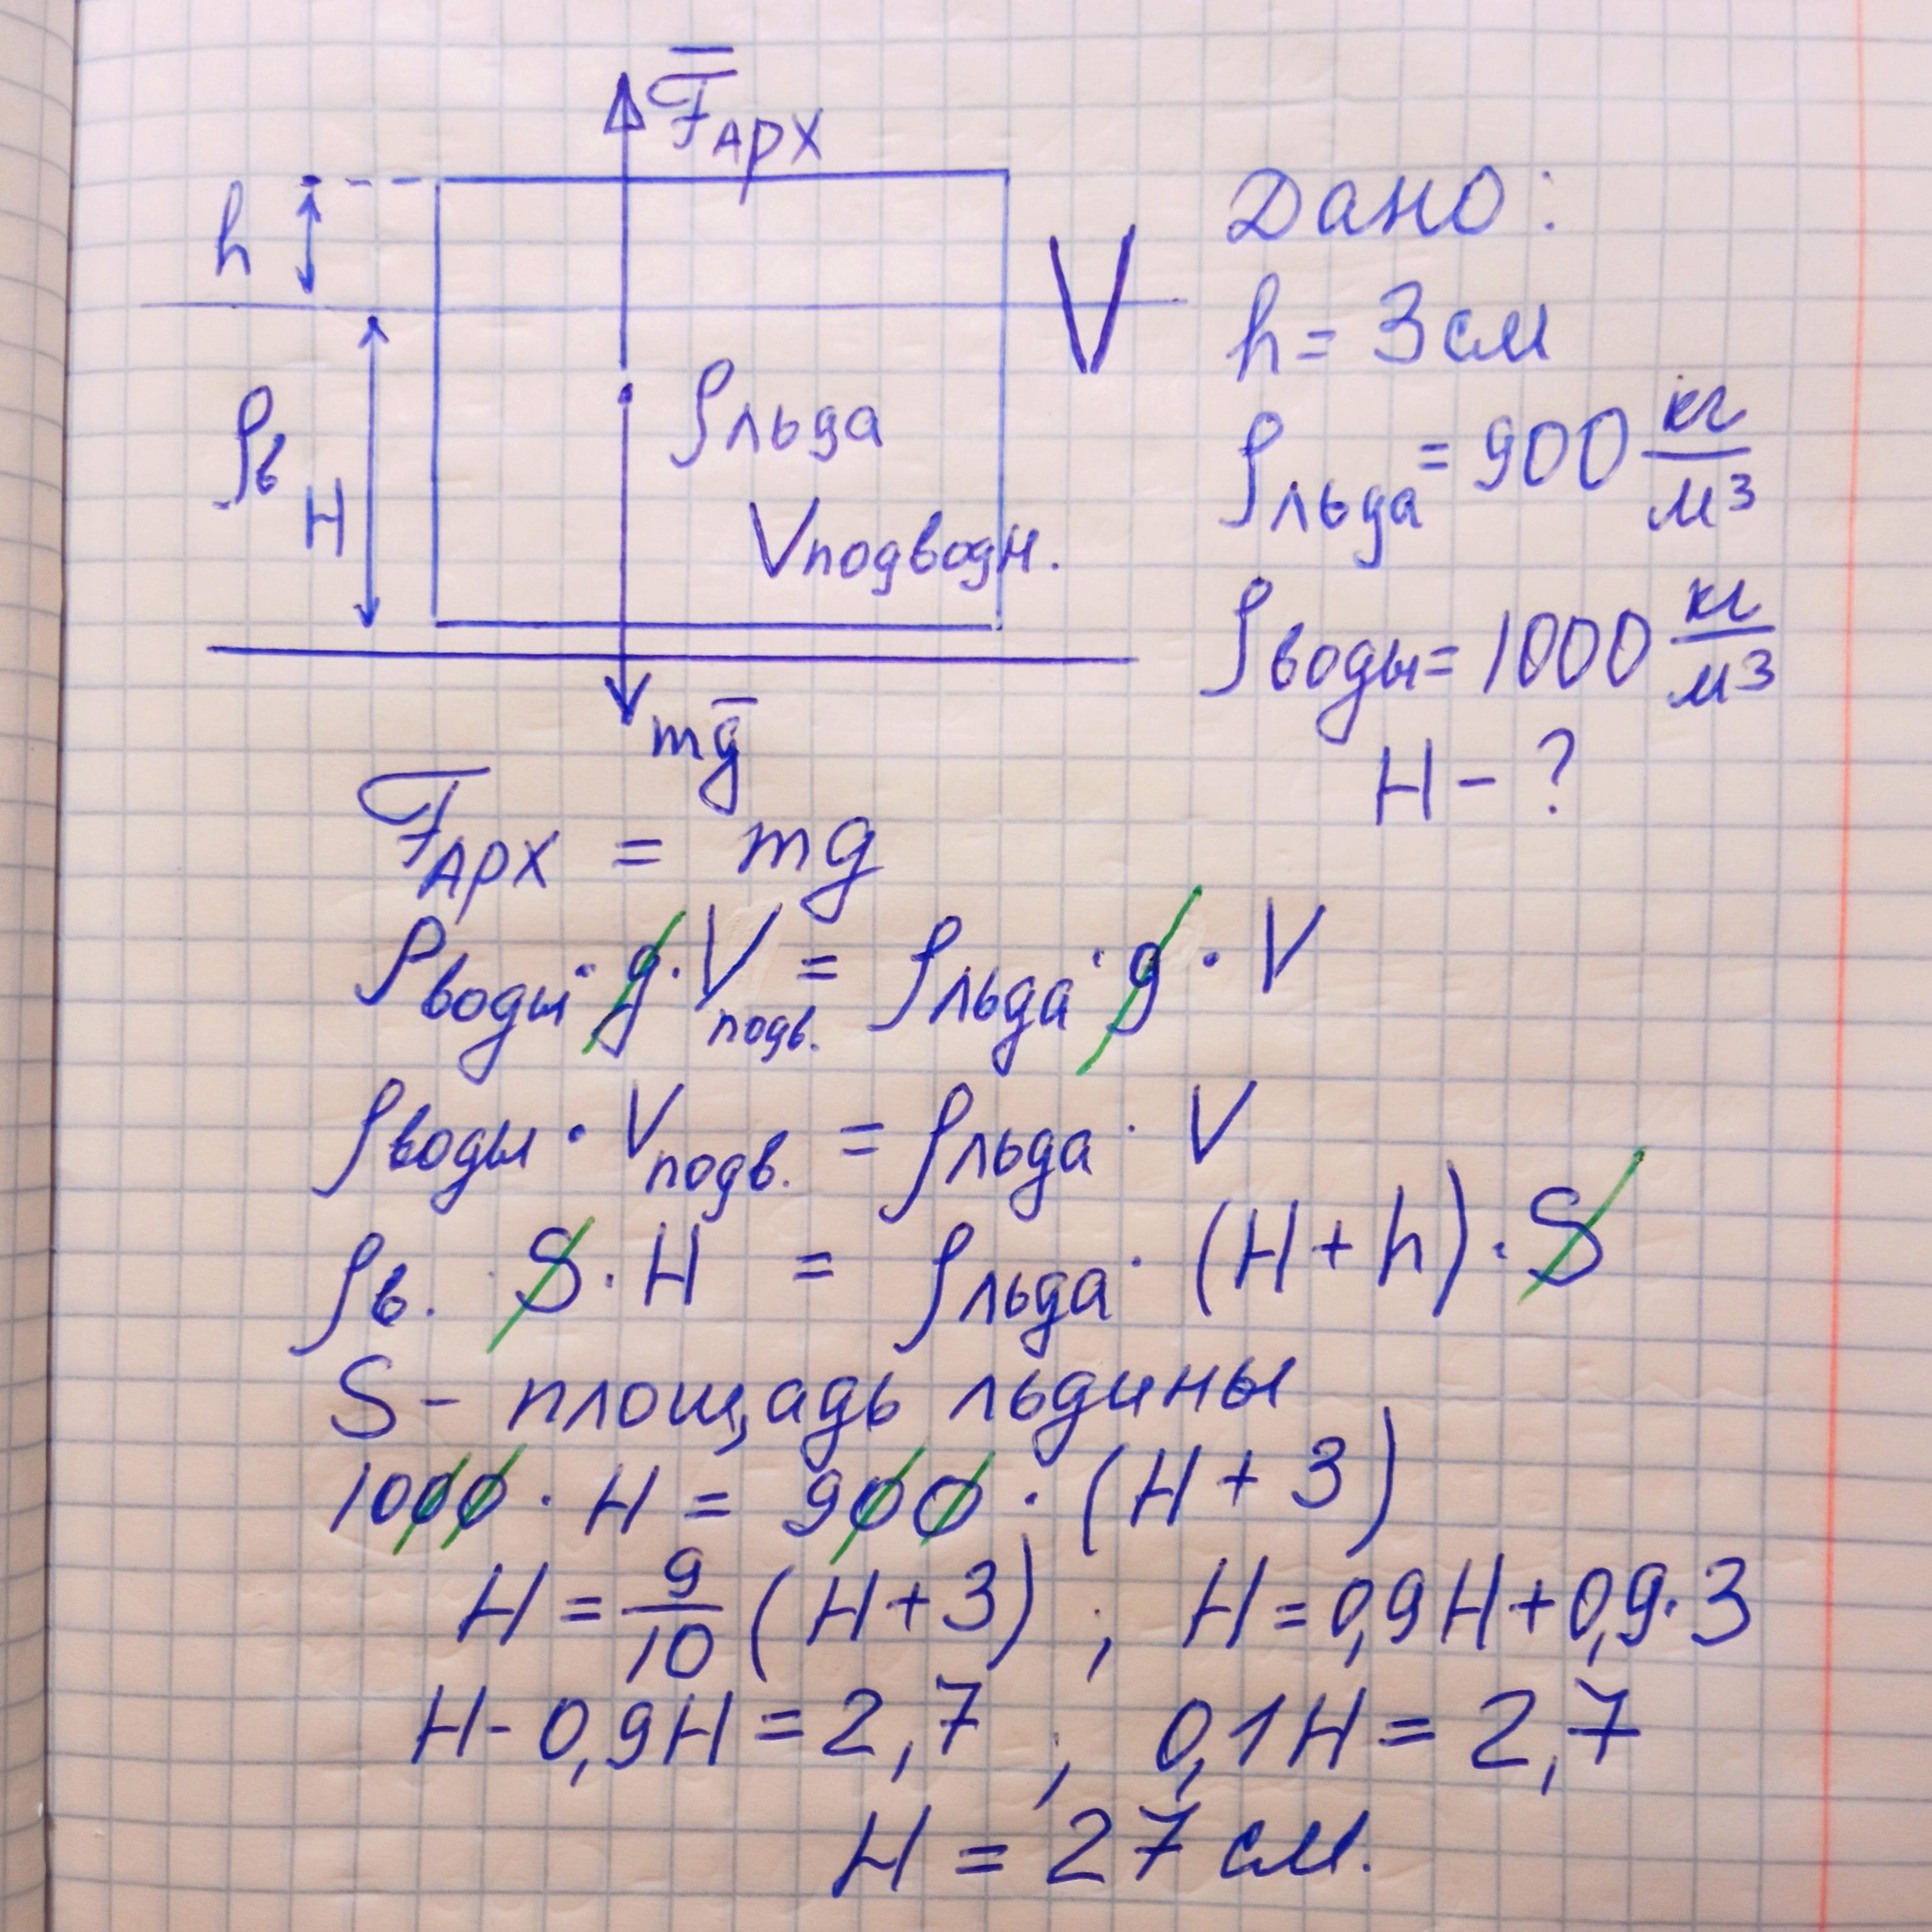 F̅арх
h
ρв
H
ρльда
Vподводн.
V
mg̅
Дано:
h = 3 см
ρльда = 900 кг/м³
ρводы = 1000 кг/м³
H - ?
Fарх = mg
ρводы · g · Vподв. = ρльда · g · V
ρводы · Vподв. = ρльда · V
ρв. · S · H = ρльда · (H + h) · S
S - площадь льдины
1000 · H = 900 · (H + 3)
H = 9/10 (H + 3) ; H = 0,9H + 0,9·3
H - 0,9H = 2,7 ; 0,1H = 2,7
H = 27 см.